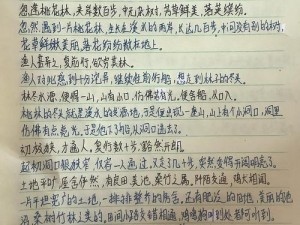 忽逢桃花林，夹岸数百步，中无杂树，芳草鲜美，落英缤纷
忽然遇到一片桃花林，生长在溪水的两岸，长达几百步，中间没有别的树，
花草鲜嫩美丽，落花纷纷散在地上。
渔人甚异之，复前行，欲穷其林。
渔人对此感到十分诧异，继续往前行船，想走到林子的尽头
林尽水源，便得一山，山有小口，仿佛若有光，便舍船，从口入
桃林的尽头就是溪水的发源地，于是便出现一座山，山上有个小洞口，洞里
仿佛有点亮光，于是他下了船，从洞口进去了。
初极狭，才通人，复行数十步，豁然开朗
起初洞口很狭窄，仅容一人通过，又走了几十步，突然变得开阔明亮了
土地平旷，屋舍俨然，有良田美池，桑竹之属，阡陌交通，鸡犬相闻。
一片平坦宽广的土地，一排排整齐的房舍，还有肥沃的田地，美丽的池
沼，桑树竹林之类的，田间小路交错相通，鸡鸣狗叫到处都可听到